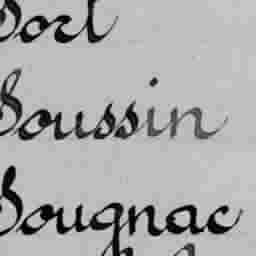 Sort
Soussin
Sougnac